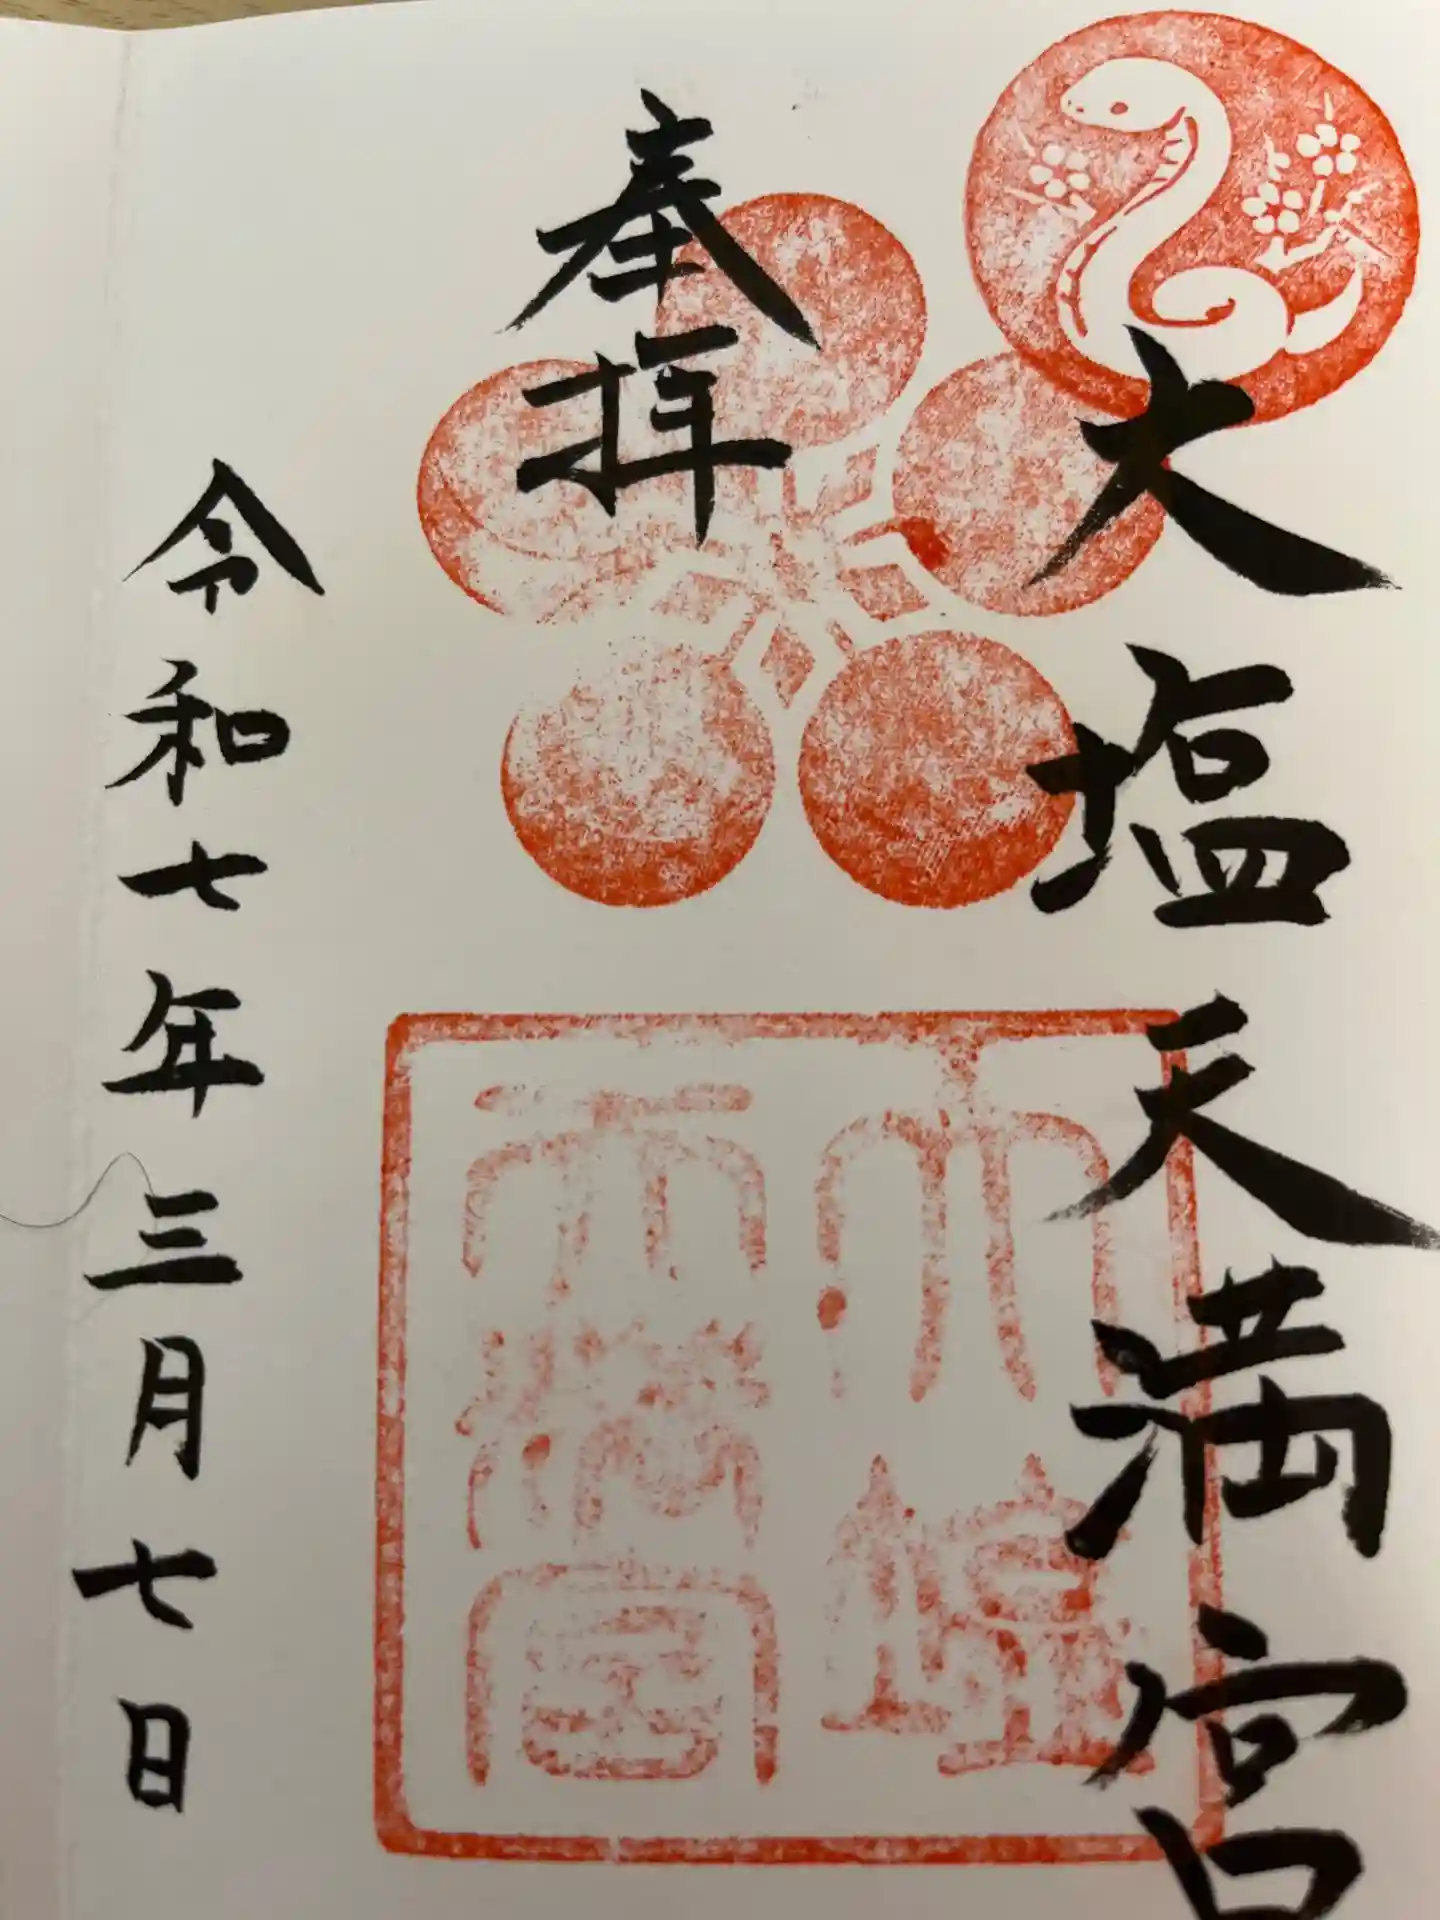 大塩天満宮
奉拝
大塩
天満宮
令和七年三月七日